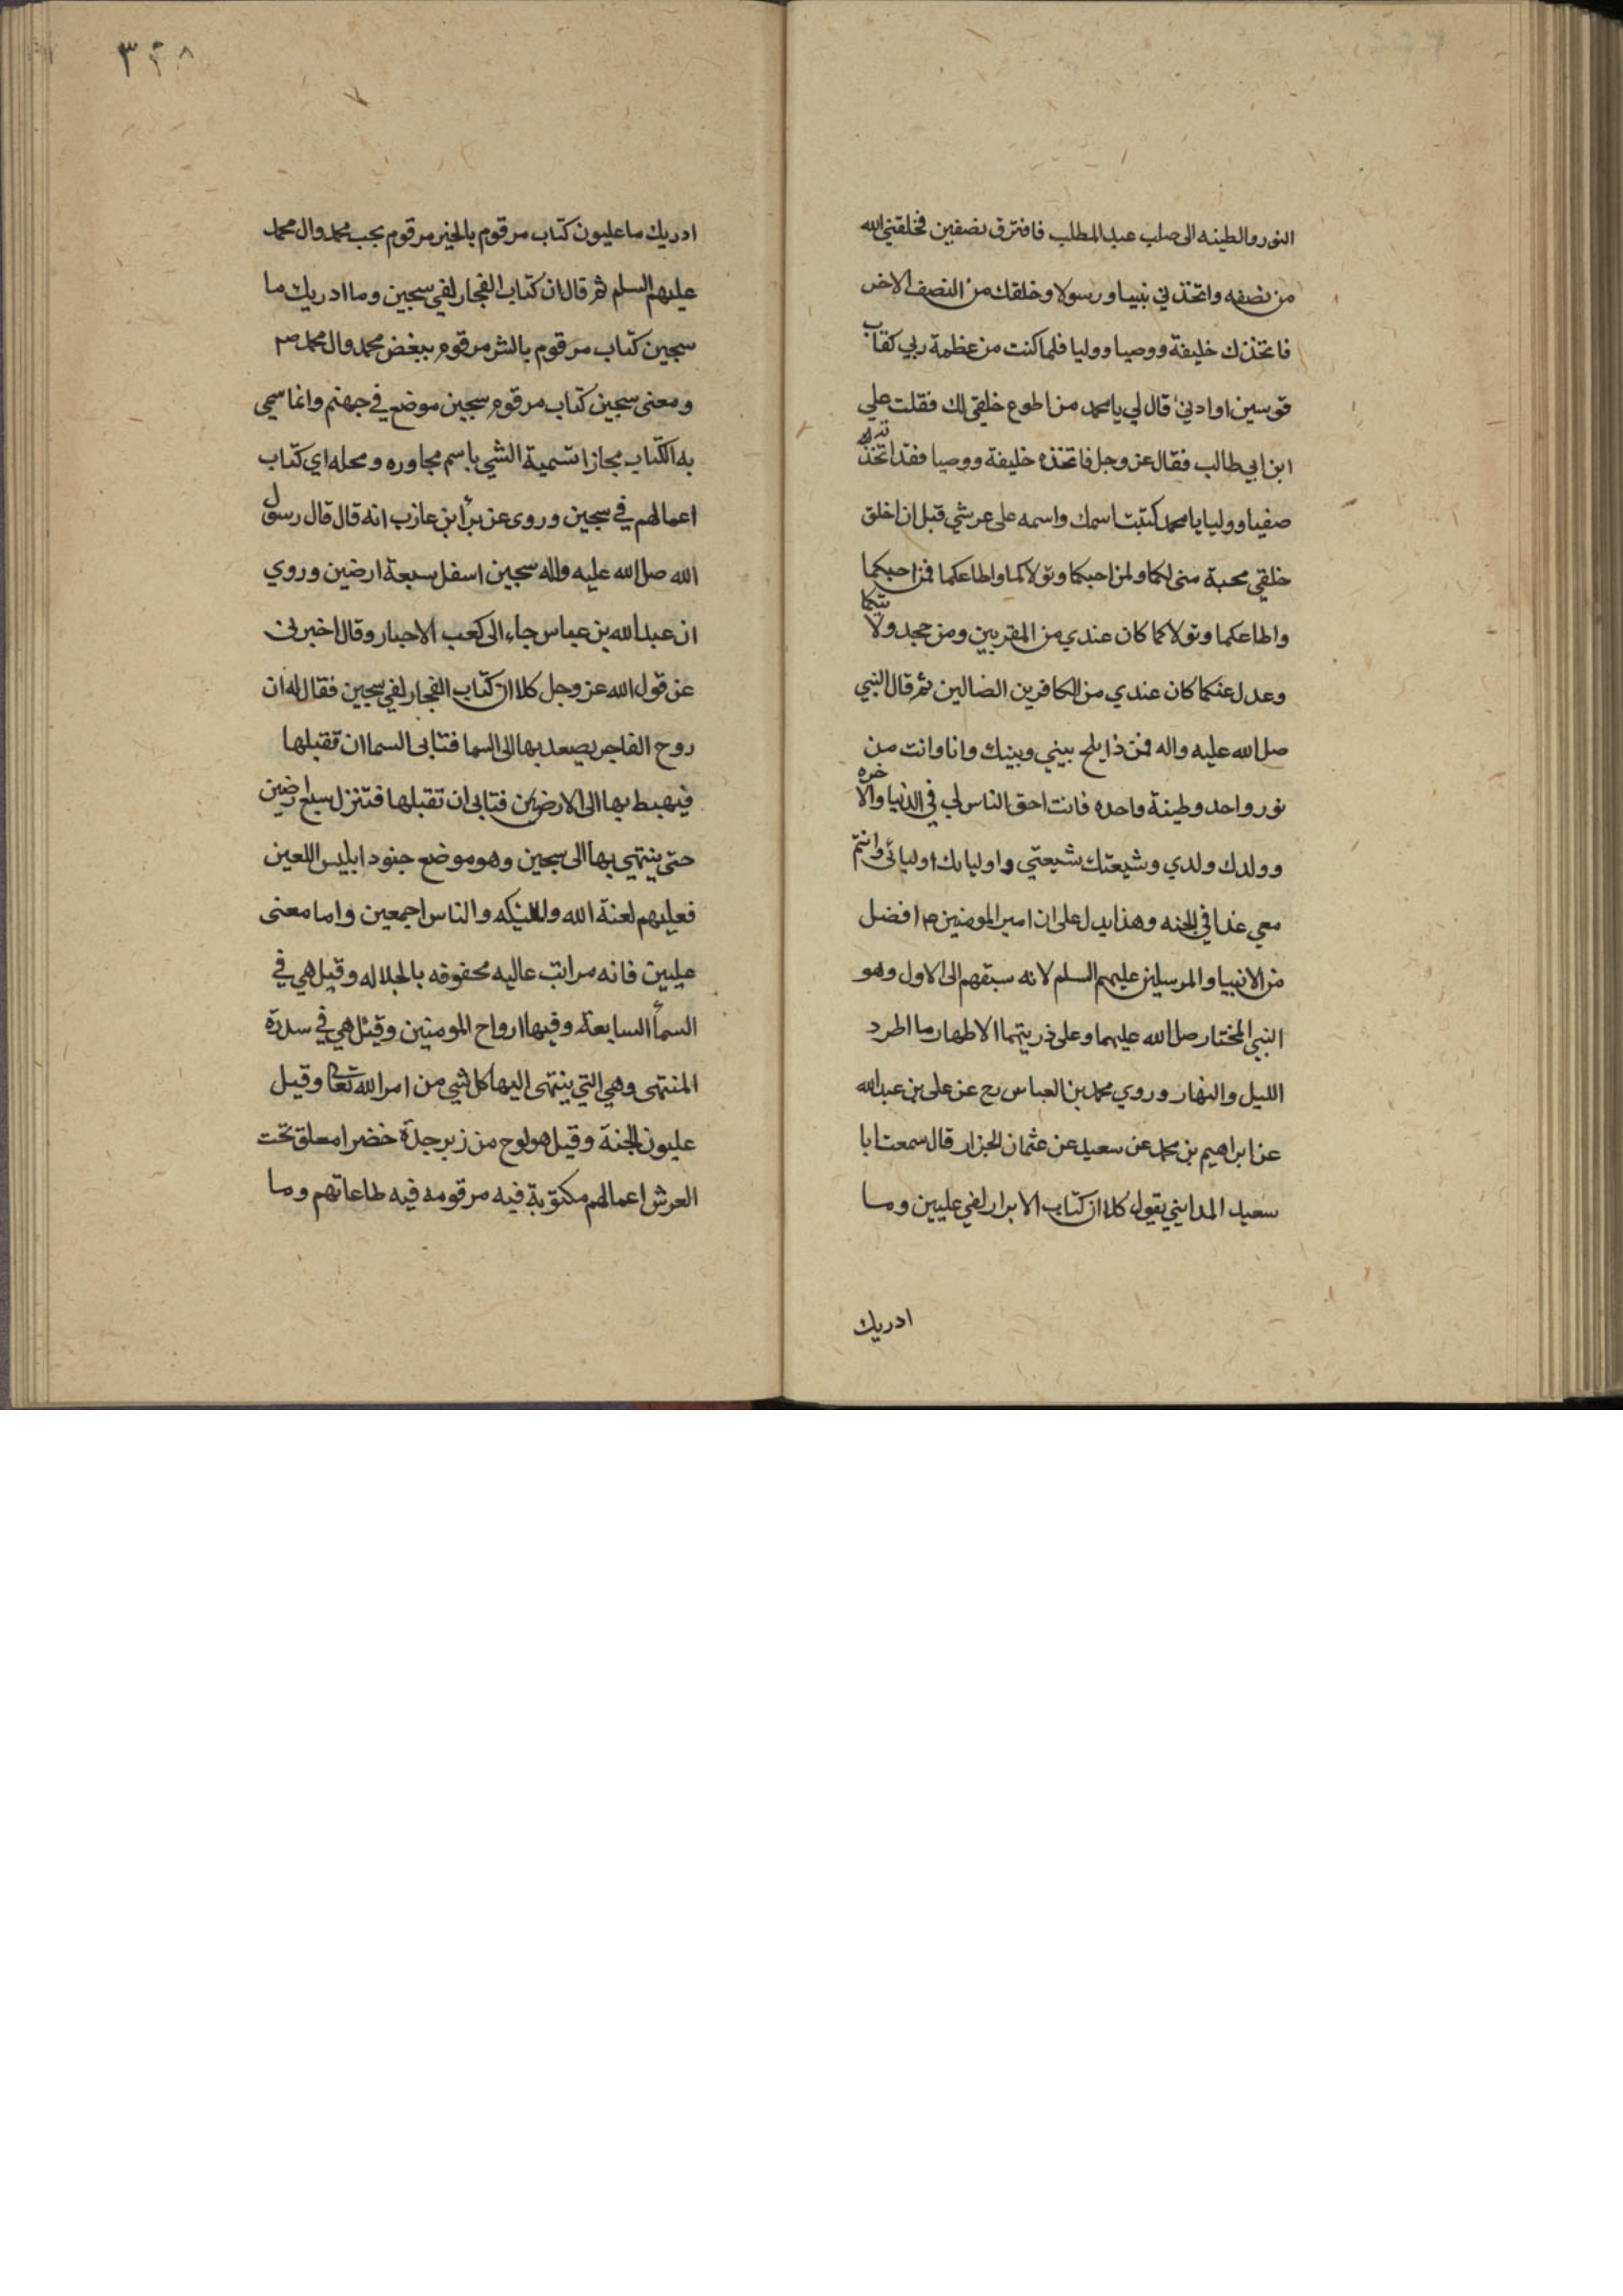 النور والطينه الى صلب عبد المطلب فافترق نصفين فخلقني الله
من نصفه واتخذني نبيا ورسولا وخلقك من النصف الاخر
فاتخذك خليفة ووصيا ووليا فلما كنت من عظمة ربي كقاب
قوسين او ادنى قال لي يا محمد من اطوع خلقي لك فقلت علي
ابن ابي طالب فقال عز وجل فاتخذه خليفة ووصيا فقد اتخذته
صفيا ووليا يا محمد كتبت اسمك واسمه على عرشي قبل ان اخلق
خلقي محبة مني لكما ولمن احبكما وتولاكما واطاعكما فمن احبكما
واطاعكما وتولاكما كان عندي من المقربين ومن جحد ولايتكما
وعدل عنكما كان عندي من الكافرين الضالين ثم قال النبي
صل الله عليه واله فمن ذا يلج بيني وبينك وانا وانت من
نور واحد وطينة واحده فانت احق الناس لي في الدنيا والاخره
وولدك ولدي وشيعتك شيعتي واولياىك اوليائى وانتم
معي غدا في الجنه وهذا يدل على ان امير المومنين ع م افضل
من الانبيا والمرسلين عليهم السلم لانه سبقهم الى الاول وهو
النبي المختار صل الله عليهما وعلى ذريتهما الاطهار ما اطرد
الليل والنهار وروي محمد بن العباس رح عن على بن عبد الله
عن ابراهيم بن محمد عن سعيد عن عثمان الخزار قال سمعت ابا
سعيد المدايني يقول كلا ان كتاب الابرار لفي عليين وما
ادريك
٣٢٨
ادريك ما عليون كتاب مرقوم بالخير مرقوم بحب محمد وال محمد
عليهم السلم ثم قال ان كتاب الفجار لفي سجين وما ادريك ما
سجين كتاب مرقوم بالشر مرقوم ببغض محمد وال محمد ص م
ومعنى سجين كتاب مرقوم سجين موضع في جهنم وانما سمي
به الكتاب مجازا تسمية الشي باسم مجاوره ومحله اي كتاب
اعمالهم في سجين وروى عن برأ ابن عازب انه قال قال رسول
الله صل الله عليه واله سجين اسفل سبعة ارضين وروي
ان عبد الله بن عباس جاء الى كعب الاحبار وقال اخبرني
عن قول الله عز وجل كلا ان كتاب الفجار لفي سجين فقال له ان
روح الفاجر يصعد بها الى السما فتابى السما ان تقبلها
فيهبط بها الى الارضين فتابى ان تقبلها فتنزل سبع ارضين
حتى ينتهي بها الى سجين وهو موضع جنود ابليس اللعين
فعليهم لعنة الله والملئيكه والناس اجمعين واما معنى
عليين فانه مراتب عاليه محفوفه بالجلاله وقيل هي في
السمأ السابعة وفيها ارواح المومنين وقيل هي في سدرة
المنتهى وهي التي ينتهى اليها كل شي من امر الله تعالى وقيل
عليون الجنة وقيل هو لوح من زبرجدة خضرا معلق تحت
العرش اعمالهم مكتوبة فيه مرقومه فيه طاعاتهم وما